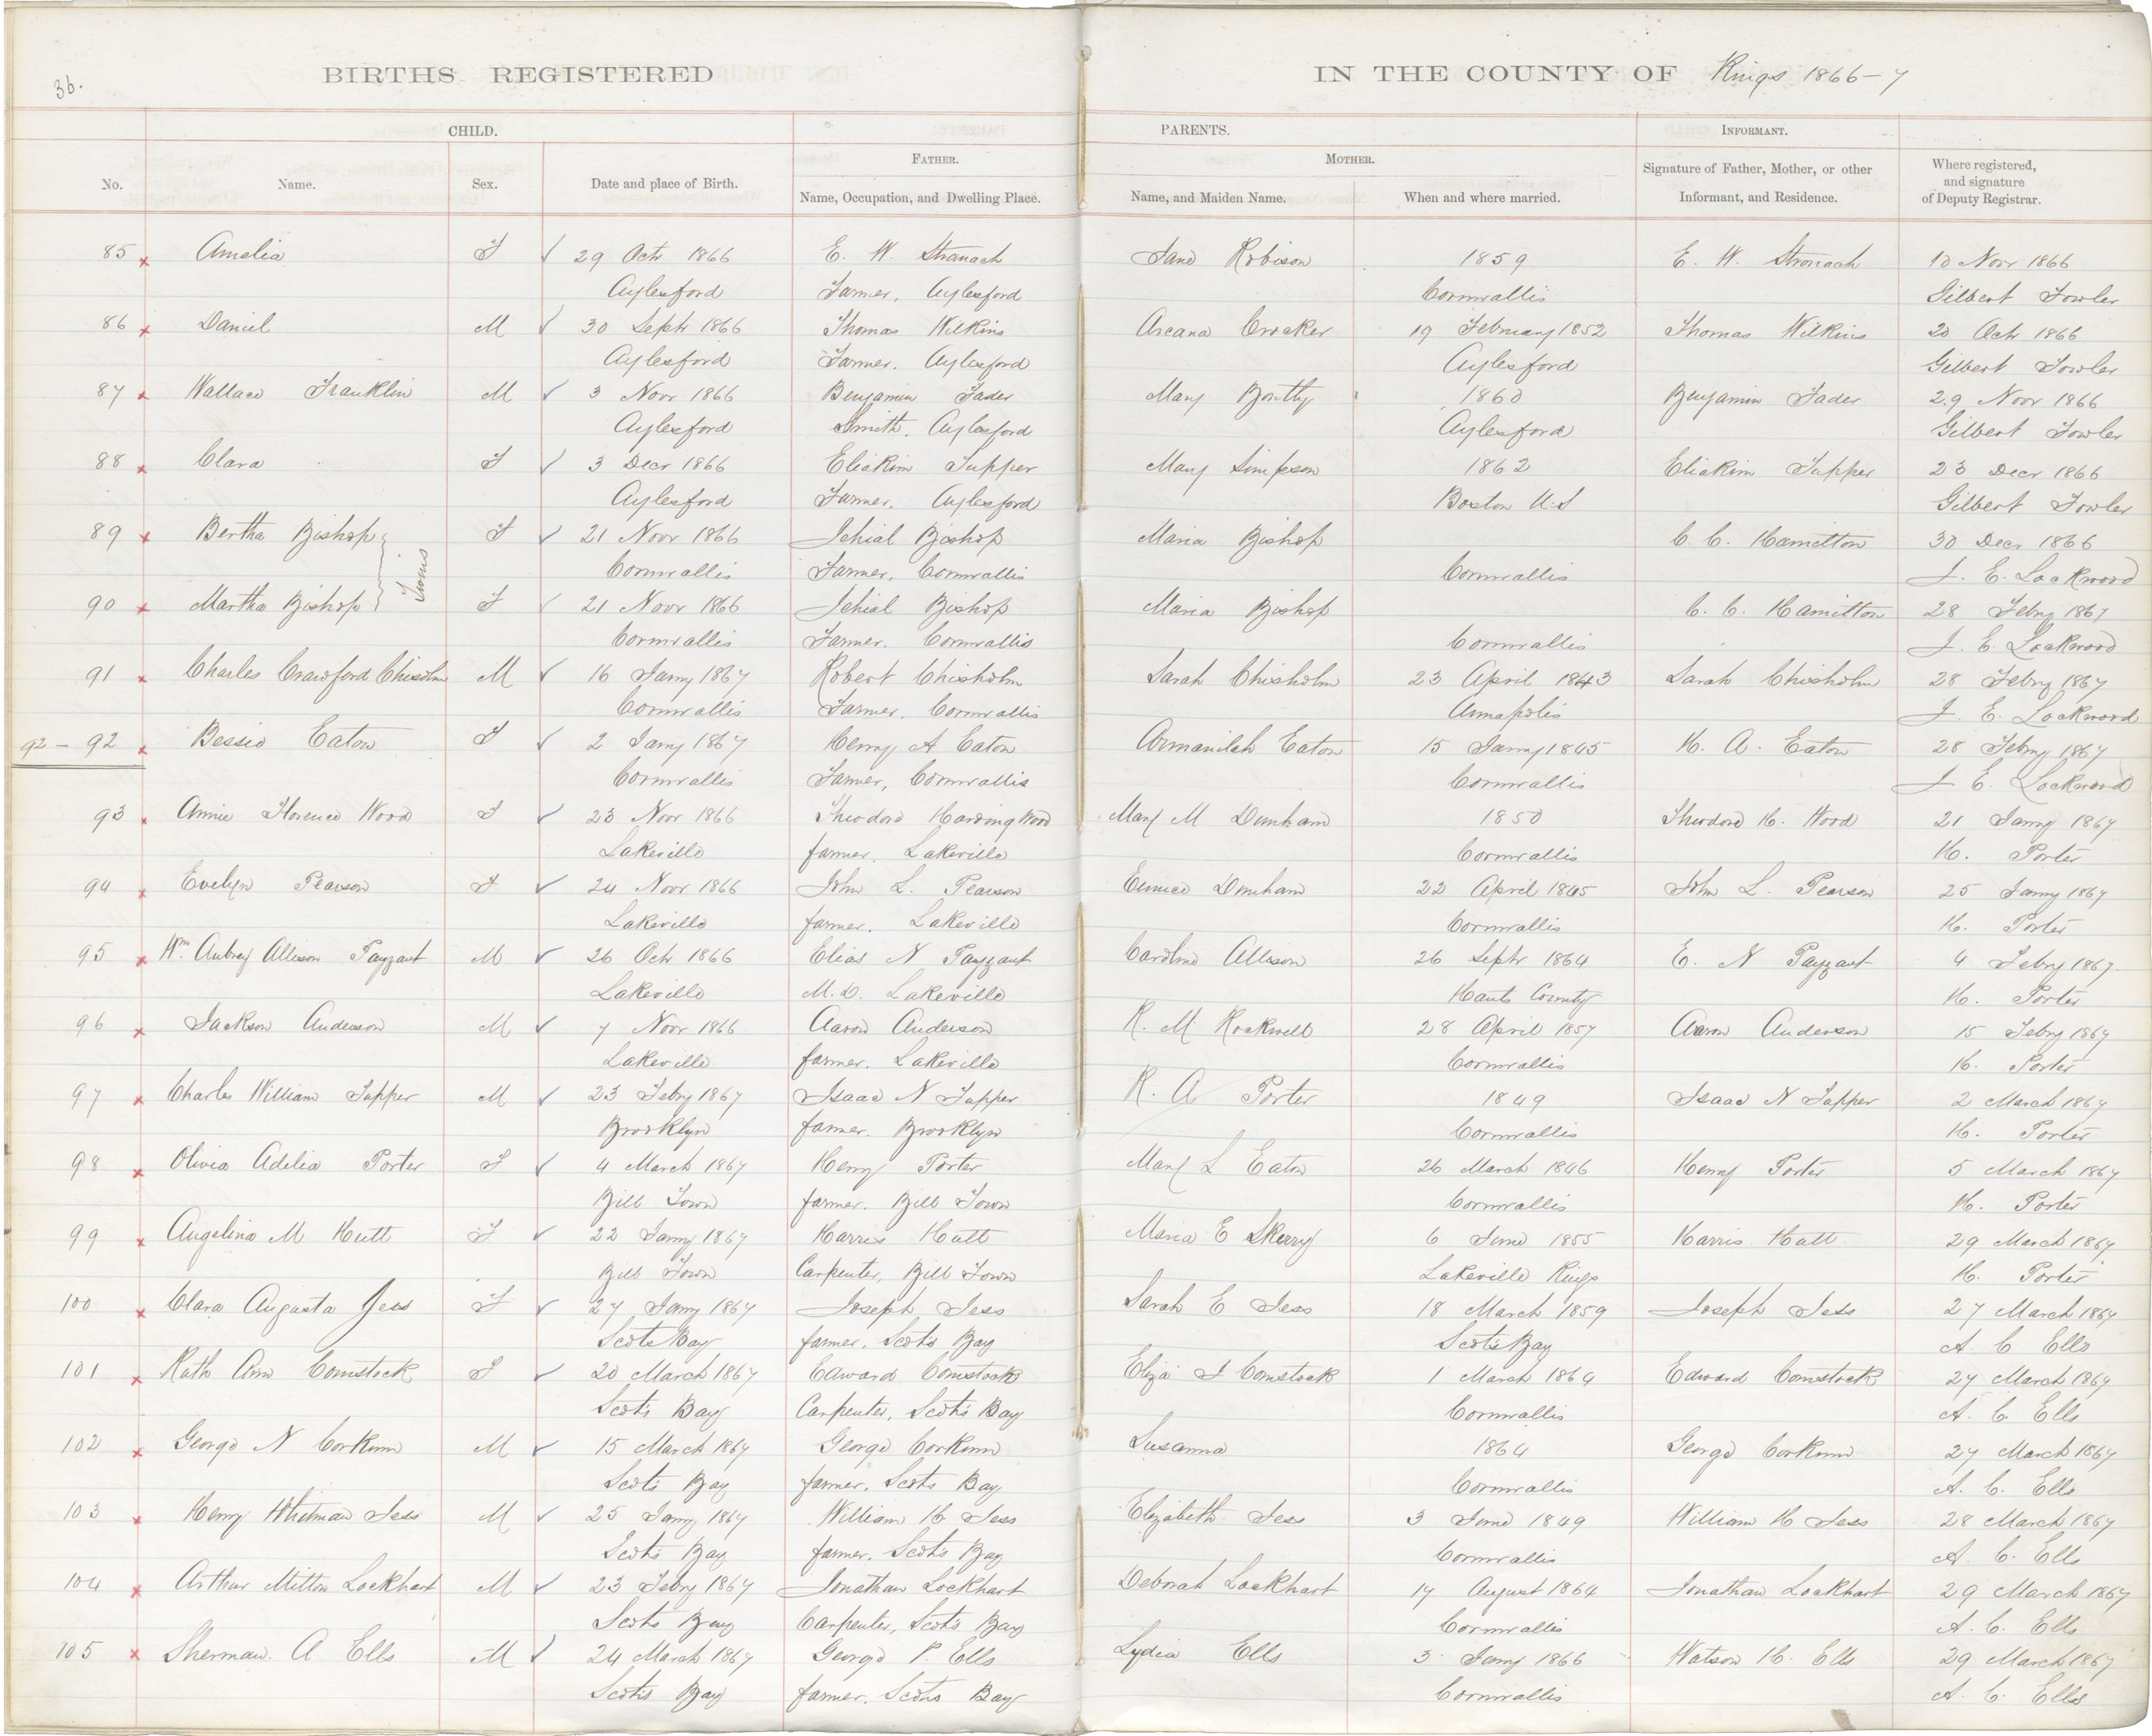 36.
BIRTHS REGISTERED IN THE COUNTY OF Kings 1866-7
CHILD. PARENTS. INFORMANT.
FATHER. MOTHER.
No. Name. Sex. Date and place of Birth. Name, Occupation, and Dwelling Place. Name, and Maiden Name. When and where married. Signature of Father, Mother, or other Informant, and Residence. Where registered, and signature of Deputy Registrar.
85 Amelia F 29 Octr 1866 E. W. Stronach Jane Robison 1859 E. W. Stronach 10 Novr 1866
Aylesford Farmer. Aylesford Cornwallis Gilbert Fowler
86 Daniel M 30 Septr 1866 Thomas Wilkins Arcana Crocker 19 February 1852 Thomas Wilkins 20 Octr 1866
Aylesford Farmer. Aylesford Aylesford Gilbert Fowler
87 Wallace Franklin M 3 Novr 1866 Benjamin Fader Mary 1860 Benjamin Fader 29 Novr 1866
Aylesford Smith. Aylesford Aylesford Gilbert Fowler
88 Clara F 3 Decr 1866 Eliakim Tupper Mary Simpson 1862 Eliakim Tupper 23 Decr 1866
Aylesford Farmer. Aylesford Boston U.S Gilbert Fowler
89 Bertha Bishop F 21 Novr 1866 Jehial Bishop Maria Bishop C. C. Hamilton 30 Decr 1866
Twins
Cornwallis Farmer. Cornwallis Cornwallis J. E. Lockwood
90 Martha Bishop F 21 Novr 1866 Jehial Bishop Maria Bishop C. C. Hamilton 28 Febry 1867
Cornwallis Farmer. Cornwallis Cornwallis J. E. Lockwood
91 Charles Crawford Chisolm M 16 Jany 1867 Robert Chisholm Sarah Chisholm 23 April 1843 Sarah Chisholm 28 Febry 1867
Cornwallis Farmer. Cornwallis Annapolis J. E. Lockwood
92 - 92 Bessie Eaton F 2 Jany 1867 Henry A Eaton Armanilah Eaton 15 Jany 1845 H. A. Eaton 28 Febry 1867
Cornwallis Farmer, Cornwallis Cornwallis J E. Lockwood
93 Annie Florence Wood F 23 Novr 1866 Theodore Harding Wood Mary M Dunham 1850 Theodore H. Wood 21 Jany 1867
Lakeville farmer. Lakeville Cornwallis H. Porter
94 Evelyn Pearson F 24 Novr 1866 John L. Pearson Eunice Dunham 22 April 1845 John L. Pearson 25 Jany 1867
Lakeville farmer. Lakeville Cornwallis H. Porter
95 Wm. Aubrey Allison Payzant M 26 Octr 1866 Elias N Payzant Caroline Allison 26 Septr 1864 E. N Payzant 4 Febry 1867
Lakeville M.D. Lakeville Hants County H. Porter
96 Jackson Anderson M 7 Novr 1866 Aaron Anderson R. M Rockwell 28 April 1857 Aaron Anderson 15 Febry 1867
Lakeville farmer. Lakeville Cornwallis H. Porter
97 Charles William Tupper M 23 Febry 1867 Isaac N Tupper R. A Porter 1849 Isaac N Tupper 2 March 1867
Brooklyn farmer. Brooklyn Cornwallis H. Porter
98 Olivia Adelia Porter F 4 March 1867 Henry Porter Mary L Eaton 26 March 1846 Henry Porter 5 March 1867
Bill Town farmer. Bill Town Cornwallis H. Porter
99 Angelina M Hutt F 22 Jany 1867 Harris Hutt Maria E Skerry 6 June 1855 Harris Hutt 29 March 1867
Bill Town Carpenter, Bill Town Lakeville Kings H. Porter
100 Clara Augusta Jess F 27 Jany 1867 Joseph Jess Sarah E Jess 18 March 1859 Joseph Jess 27 March 1867
Scots Bay farmer. Scots Bay Scots Bay A. C Ells
101 Ruth Ann Comstock F 20 March 1867 Edward Comstock Eliza J Comstock 1 March 1864 Edward Comstock 27 March 1867
Scots Bay Carpenter, Scots Bay Cornwallis A. C. Ells
102 George N Corkum M 15 March 1867 George Corkum Susanna 1864 George Corkum 27 March 1867
Scots Bay farmer. Scots Bay Cornwallis A. C. Ells
103 Henry Whitman Jess M 25 Jany 1867 William H Jess Elizabeth Jess 3 June 1849 William H Jess 28 March 1867
Scots Bay farmer. Scots Bay Cornwallis A. C. Ells
104 Arthur Milton Lockhart M 23 Febry 1867 Jonathan Lockhart Deborah Lockhart 17 August 1864 Jonathan Lockhart 29 March 1867
Scots Bay Carpenter, Scots Bay Cornwallis A. C. Ells
105 Sherman A Ells M 24 March 1867 George P. Ells Lydia Ells 3 Jany 1866 Watson H. Ells 29 March 1867
Scots Bay farmer. Scots Bay Cornwallis A. C. Ells